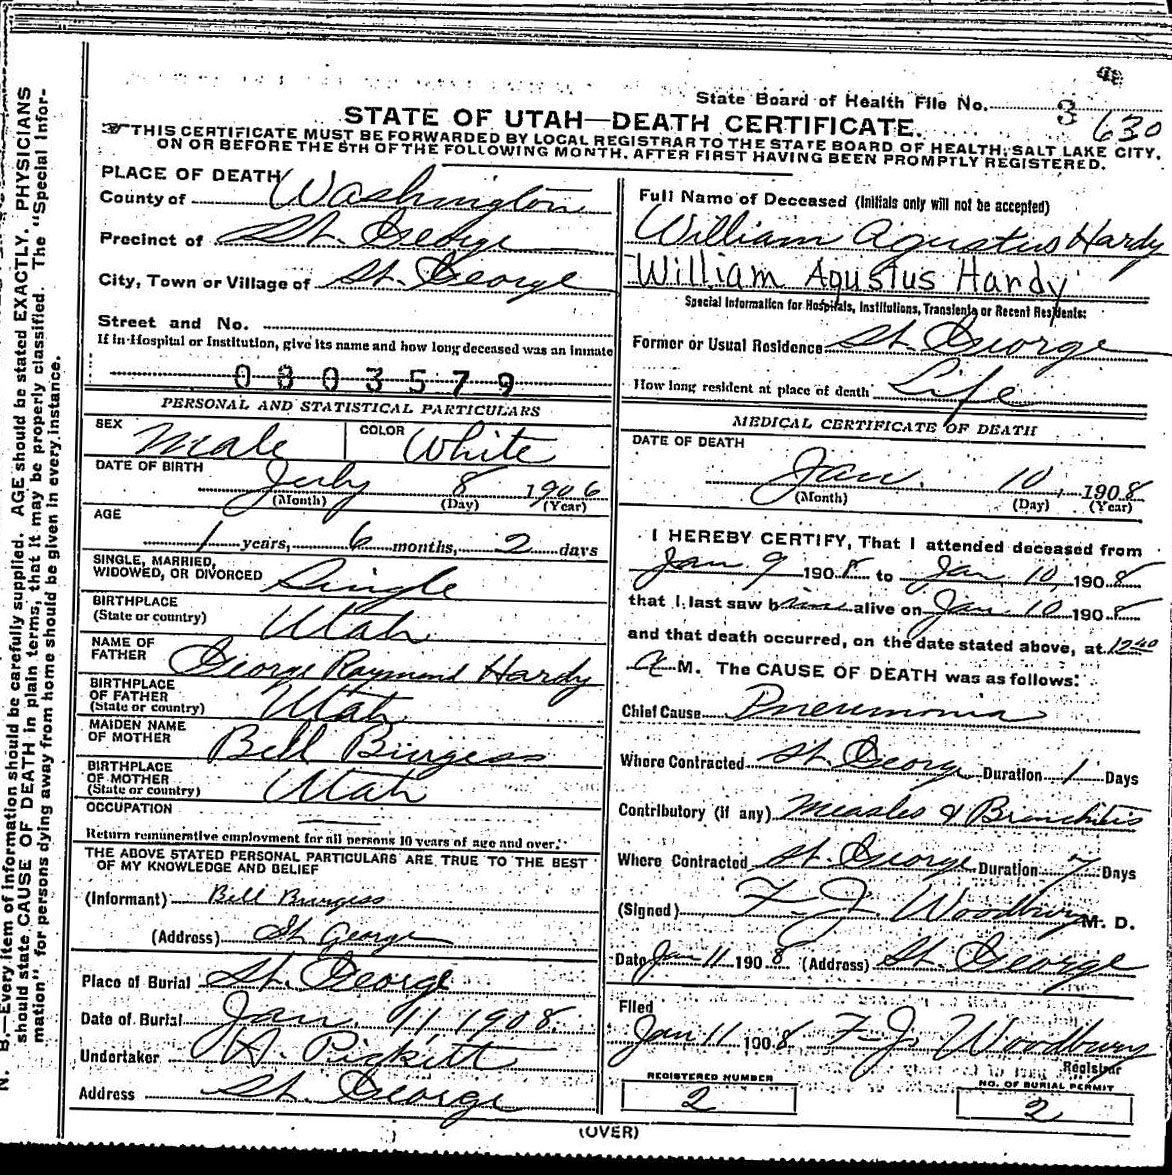 State Board of Health File No. 3 630
STATE OF UTAH—DEATH CERTIFICATE.
THIS CERTIFICATE MUST BE FORWARDED BY LOCAL REGISTRAR TO THE STATE BOARD OF HEALTH, SALT LAKE CITY,
ON OR BEFORE THE 5TH OF THE FOLLOWING MONTH, AFTER FIRST HAVING BEEN PROMPTLY REGISTERED.
PLACE OF DEATH
County of Washington
Precinct of St. George
City, Town or Village of St. George
Street and No.
If in Hospital or Institution, give its name and how long deceased was an inmate
0803579
PERSONAL AND STATISTICAL PARTICULARS
SEX Male COLOR White
DATE OF BIRTH July 8 1906
(Month) (Day) (Year)
AGE
1 years, 6 months, 2 days
SINGLE, MARRIED,
WIDOWED, OR DIVORCED Single
BIRTHPLACE
(State or country) Utah
NAME OF
FATHER George Raymond Hardy
BIRTHPLACE
OF FATHER
(State or country) Utah
MAIDEN NAME
OF MOTHER Bell Burgess
BIRTHPLACE
OF MOTHER
(State or country) Utah
OCCUPATION
Return remunerative employment for all persons 10 years of age and over.
THE ABOVE STATED PERSONAL PARTICULARS ARE TRUE TO THE BEST
OF MY KNOWLEDGE AND BELIEF
(Informant) Bell Burgess
(Address) St George
Place of Burial St. George
Date of Burial Jan. 11 1908.
Undertaker A. Pickett
Address St. George
Full Name of Deceased (Initials only will not be accepted)
William Agustus Hardy
William Agustus Hardy
Special Information for Hospitals, Institutions, Transients or Recent Residents:
Former or Usual Residence St. George
How long resident at place of death Life
MEDICAL CERTIFICATE OF DEATH
DATE OF DEATH
Jan. 10, 1908
(Month) (Day) (Year)
I HEREBY CERTIFY, That I attended deceased from
Jan 9 1908 to Jan. 10, 1908
that I last saw him alive on Jan 10 1908
and that death occurred, on the date stated above, at 12:40
a M. The CAUSE OF DEATH was as follows:
Chief Cause Pneumonia
Where Contracted St. George Duration 1 Days
Contributory (if any) Measles & Bronchitis
Where Contracted St. George Duration 7 Days
(Signed) F. J. Woodbury M. D.
Date Jan 11 1908 (Address) St. George
Filed
Jan 11 1908 F. J. Woodbury
Registrar
REGISTERED NUMBER
2
NO. OF BURIAL PERMIT
2
(OVER)
N. B.—Every item of information should be carefully supplied. AGE should be stated EXACTLY. PHYSICIANS
should state CAUSE OF DEATH in plain terms, that it may be properly classified. The "Special Infor-
mation" for persons dying away from home should be given in every instance.